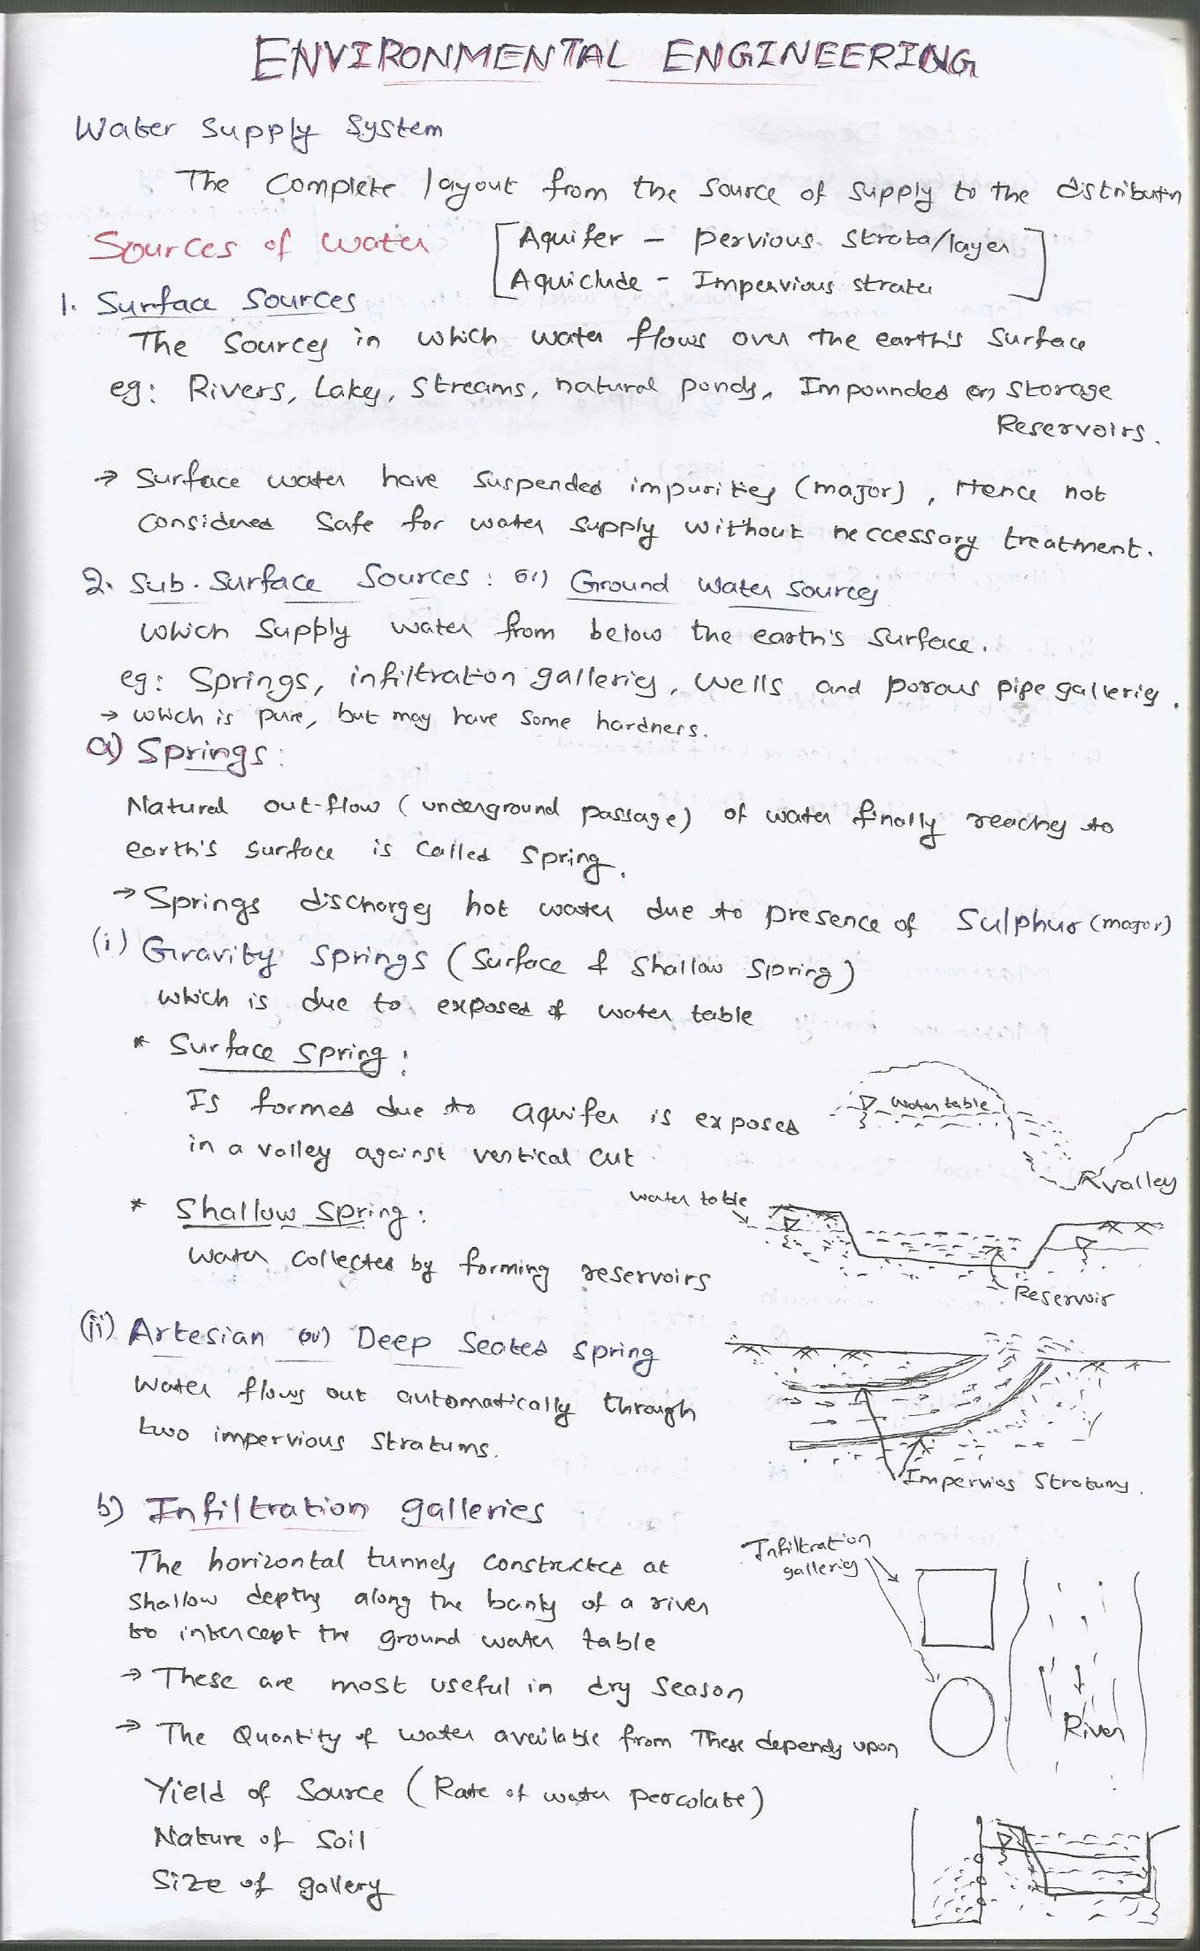 ENVIRONMENTAL ENGINEERING
Water Supply System
The Complete layout from the source of supply to the distributn
Sources of water
Aquifer - Pervious strata/layer
Aquiclude - Impervious strata
1. Surface Sources
The Sources in which water flows over the earth's surface
eg: Rivers, Lakes, Streams, natural ponds, Impounded or Storage
Reservoirs.
→ Surface water have suspended impurities (major), Hence not
Considered Safe for water supply without neccessary treatment.
2. Sub-surface Sources: or) Ground water sources
Which Supply water from below the earth's surface.
eg: Springs, infiltration galleries, wells and porous pipe galleries.
→ Which is pure, but may have some hardness.
a) Springs:
Natural out-flow (underground passage) of water finally reaches to
earth's surface is called spring.
→ Springs discharges hot water due to presence of Sulphur (major)
(i) Gravity springs (Surface & Shallow Spring)
which is due to exposed of water table
* Surface Spring:
Is formed due to aquifer is exposed
in a valley against vertical cut
water table
valley
* Shallow Spring:
Water collected by forming reservoirs
water table
Reservoir
(ii) Artesian or) Deep Seated spring
Water flows out automatically through
two impervious stratums.
Impervios Stratums.
b) Infiltration galleries
The horizontal tunnels constructed at
shallow depths along the banks of a river
to intercept the ground water table
→ These are most useful in dry season
→ The Quantity of water available from These depends upon
Yield of Source (Rate of water percolate)
Nature of Soil
Size of gallery
Infiltration
galleries
River